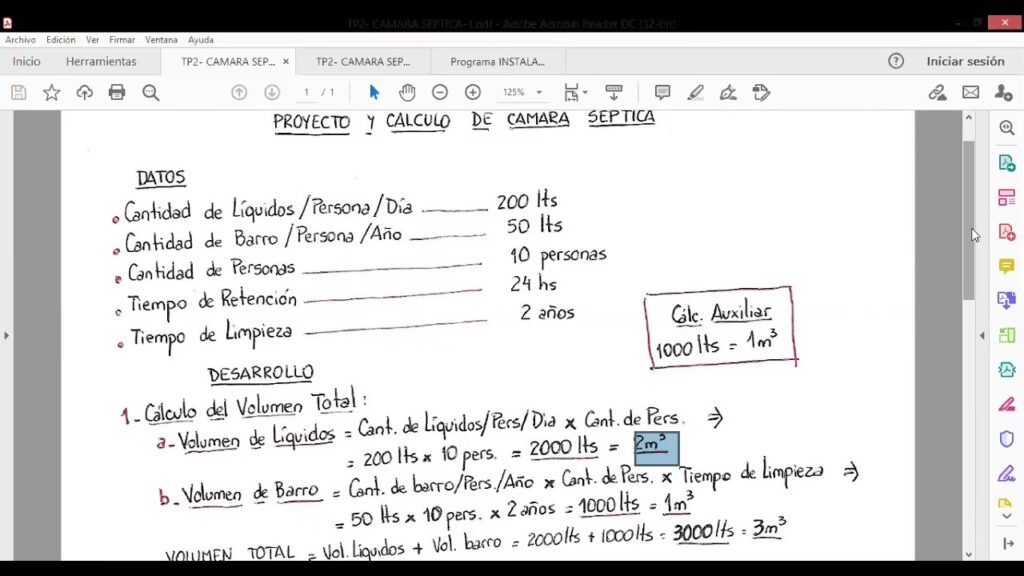 TP2- CAMARA SEPTICA-1.pdf - Adobe Acrobat Reader DC (32-bit)
Archivo Edición Ver Firmar Ventana Ayuda
Inicio Herramientas TP2- CAMARA SEP... × TP2- CAMARA SEP... Programa INSTALA... Iniciar sesión
1 / 1 125%
PROYECTO Y CALCULO DE CAMARA SEPTICA
DATOS
• Cantidad de Líquidos/Persona/Día 200 lts
• Cantidad de Barro/Persona/Año 50 lts
• Cantidad de Personas 10 personas
• Tiempo de Retención 24 hs
• Tiempo de Limpieza 2 años
Cálc. Auxiliar
1000 lts = 1m³
DESARROLLO
1- Cálculo del Volumen Total:
a- Volumen de Líquidos = Cant. de Líquidos/Pers/Dia x Cant. de Pers. ⇒
= 200 lts x 10 pers. = 2000 lts = 2m³
b- Volumen de Barro = Cant. de barro/Pers./Año x Cant. de Pers. x Tiempo de Limpieza ⇒
= 50 lts x 10 pers. x 2 años = 1000 lts = 1m³
VOLUMEN TOTAL = Vol. Liquidos + Vol. barro = 2000 lts + 1000 lts = 3000 lts = 3m³